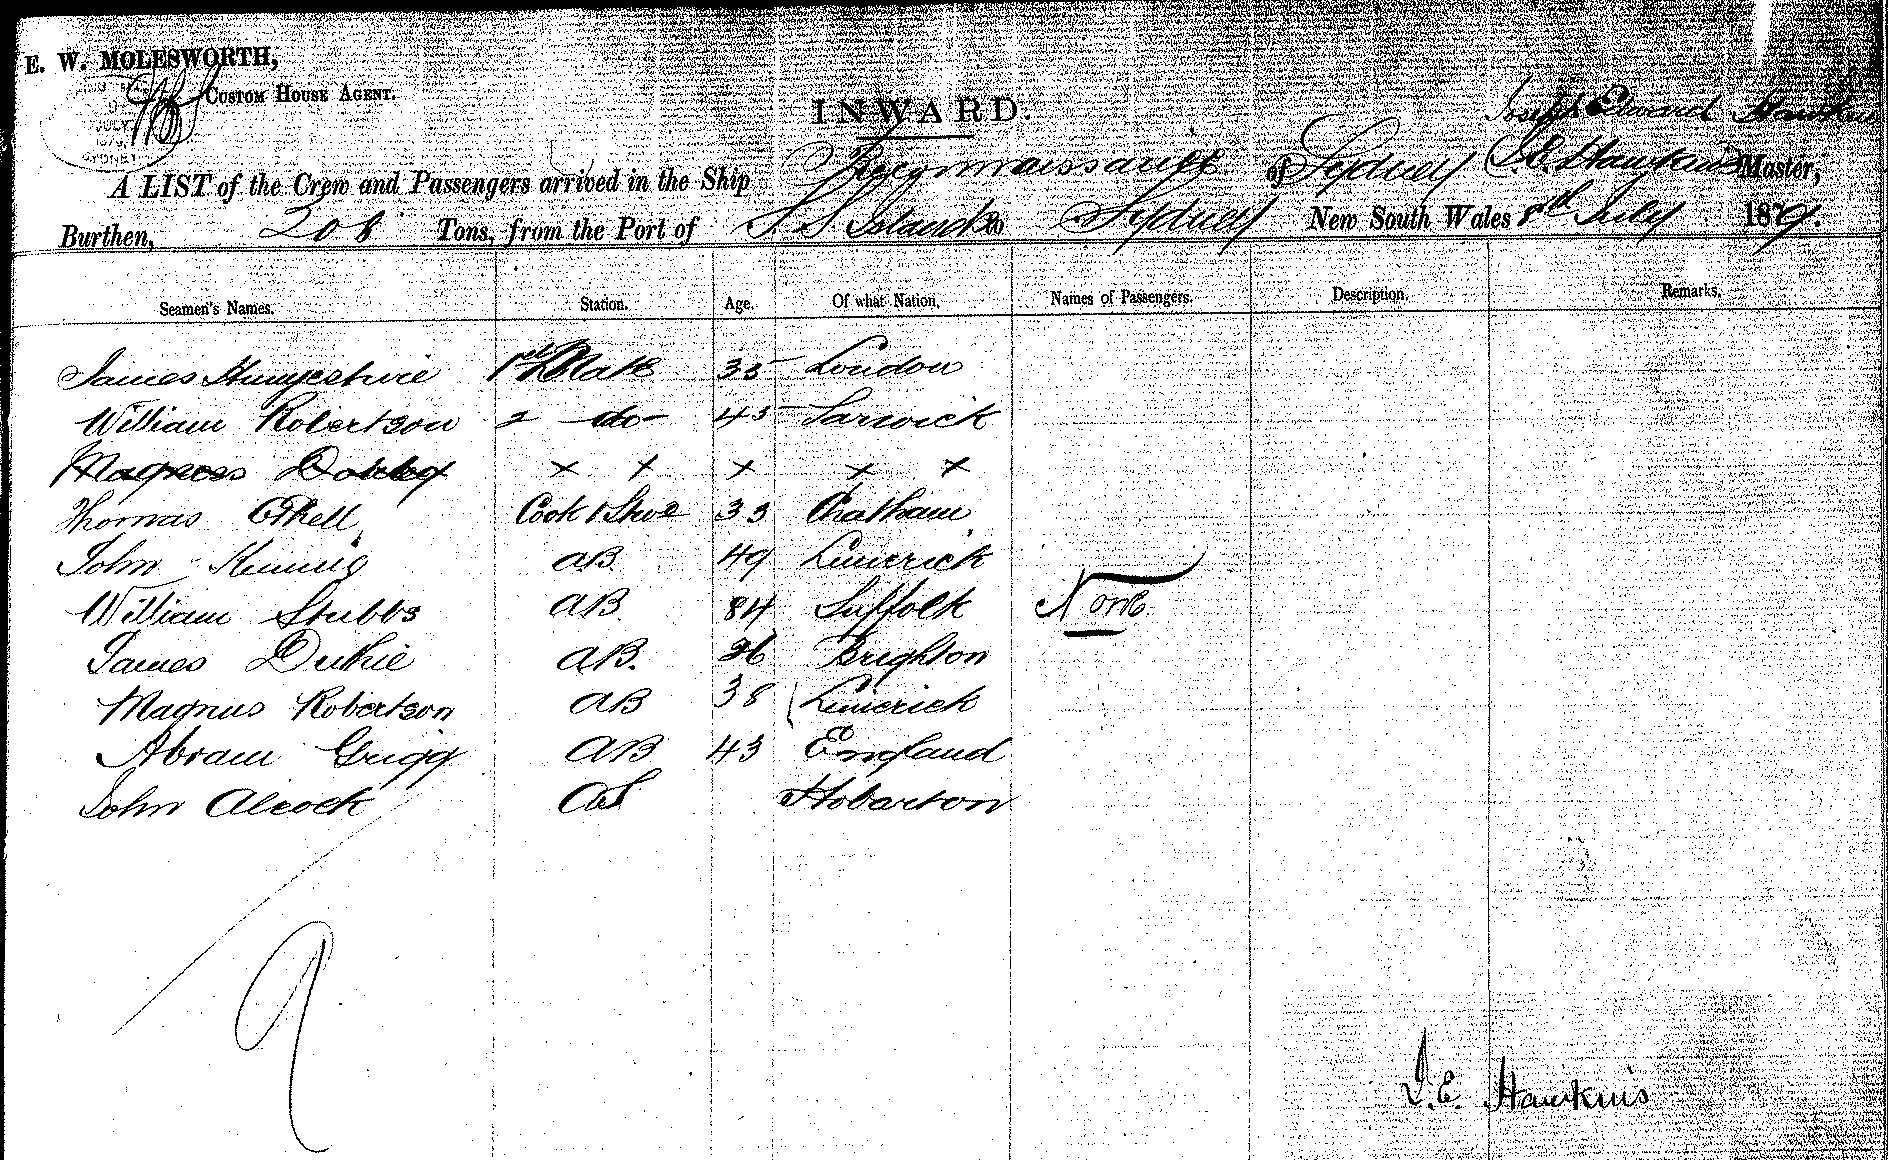 E. W. MOLESWORTH,
CUSTOM HOUSE AGENT.
JULY
SYDNEY
INWARD.
Joseph Edward Hawkins
A LIST of the Crew and Passengers arrived in the Ship of Sydney J. E. Hawkins Master,
Burthen, 208 Tons, from the Port of S. S. Islands to Sydney New South Wales 8th July 1879.
Seamen's Names. Station. Age. Of what Nation, Names of Passengers. Description. Remarks.
James 1st Mate 35 London
William Robertson 2 do 45 Larwick
Magnes x x x x x
Thomas Cook & 33 Chatham
John AB 49 Limerick
William Stubbs AB 84 Suffolk None
James Duthie AB. 26 Brighton
Magnus Robertson AB 38 Limerick
Abram Grigg AB 43 England
John Alcock OS Hobarton
9
J. E. Hawkins